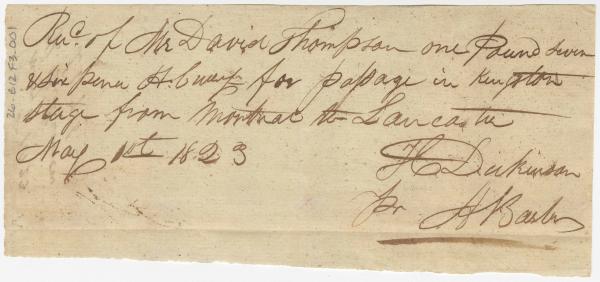 Rec. of Mr David Thompson one Pound Seven
& six pence H. Cuy for passage in Kingston
Stage from Montreal to Lancaster
May 1st 1823
H Dickinson
pr A Barber
24-612 F3-001